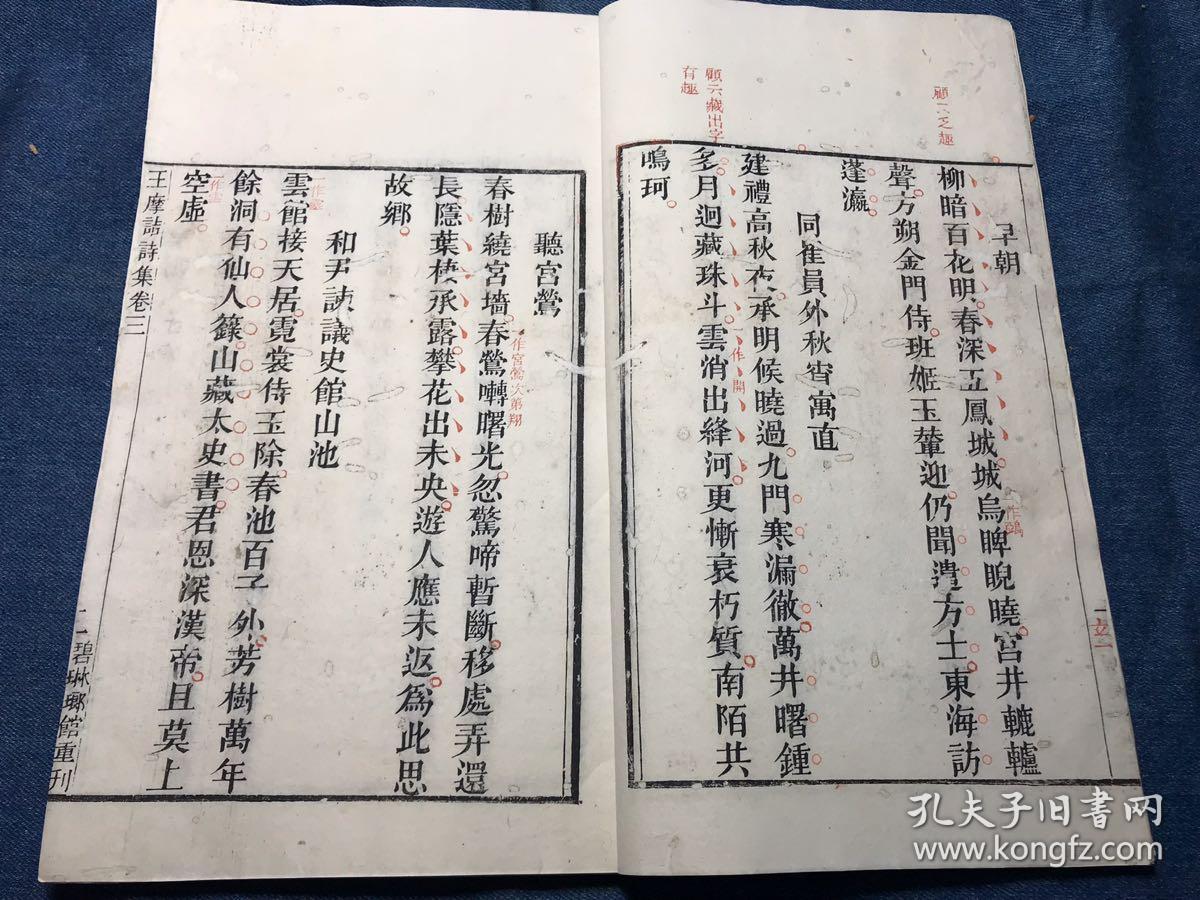 顧云乏趣
早朝
柳暗百花明春深五鳳城城烏睥睨曉宮井轆轤
一作鵶
聲方朔金門侍班姬玉輦迎仍聞遣方士東海訪
蓬瀛
同崔員外秋宵寓直
建禮高秋夜承明候曉過九門寒漏徹萬井曙鍾
顧云藏出字
有趣
多月迥藏珠斗雲消出絳河更慚衰朽質南陌共
一作開
鳴珂
聽宮鶯
春樹繞宮墻春鶯囀曙光忽驚啼暫斷移處弄還
一作宮鶯次第翔
長隱葉棲承露攀花出未央遊人應未返為此思
故鄉
和尹諫議史館山池
雲館接天居霓裳侍玉除春池百子外芳樹萬年
餘洞有仙人籙山藏太史書君恩深漢帝且莫上
空虛
王摩詰詩集卷三
二
碧琳瑯館重刊
孔夫子旧书网
www.kongfz.com